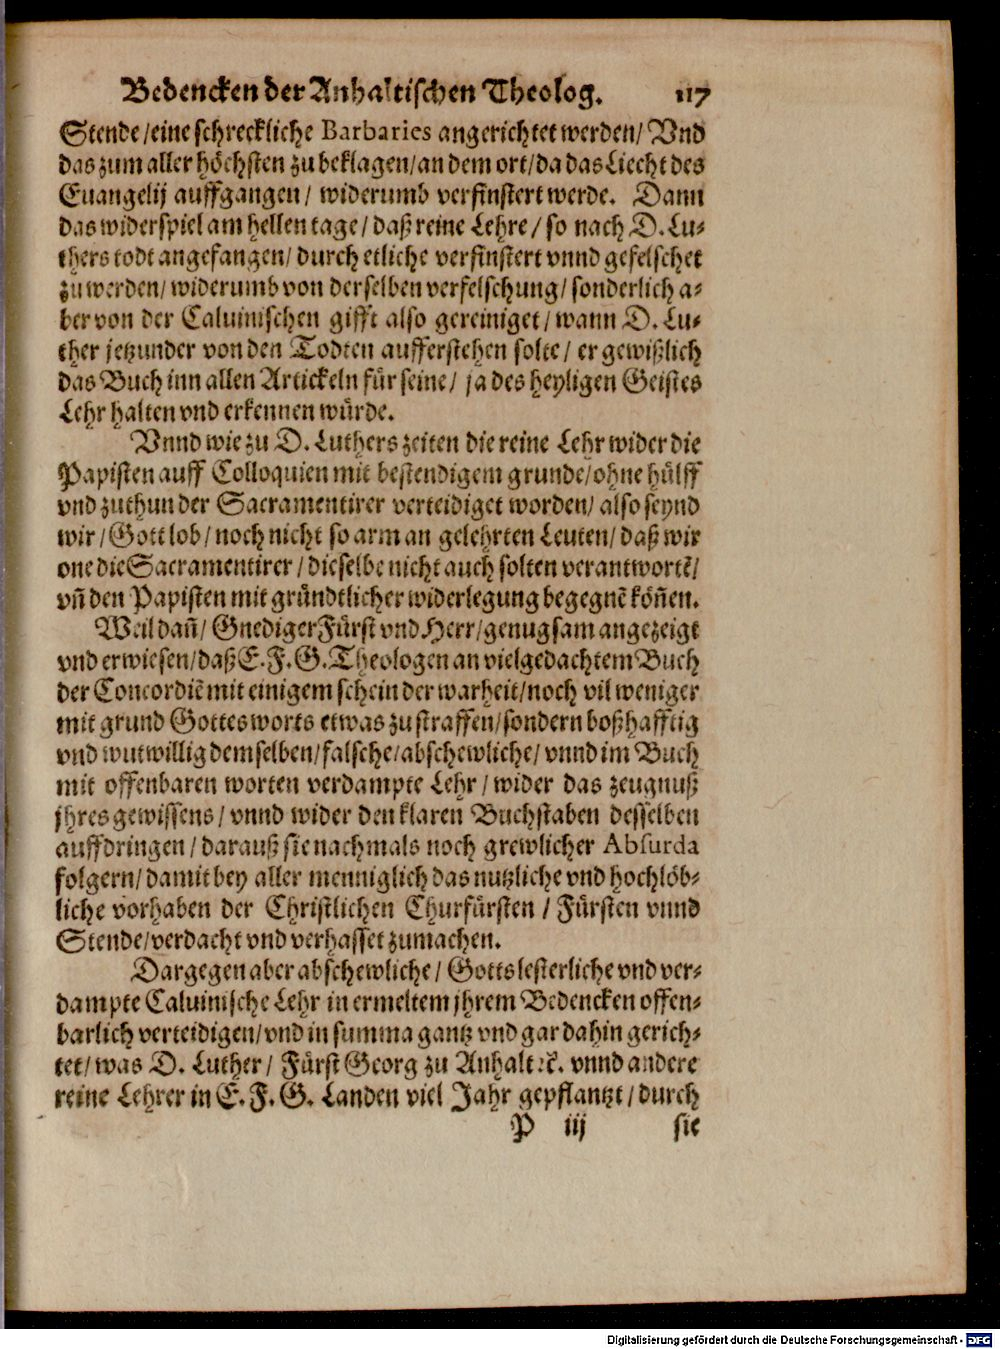 Bedencken der Anhaltischen Theolog. 117
Stende/eine schreckliche Barbaries angerichtet werden/ Vnd
das zum aller höchsten zu beklagen/an dem ort/da das Liecht des
Euangelij auffgangen/ widerumb verfinstert werde. Dann
das widerspiel am hellen tage/ daß reine Lehre/ so nach D. Lu-
thers todt angefangen/ durch etliche verfinstert vnnd gefelschet
zu werden/ widerumb von derselben verfelschung/ sonderlich a-
ber von der Caluinischen gifft also gereiniget/ wann D. Lu-
ther jetzunder von den Todten aufferstehen solte/ er gewißlich
das Buch inn allen Artickeln für seine/ ja des heyligen Geistes
Lehr halten vnd erkennen würde.
Vnnd wie zu D. Luthers zeiten die reine Lehr wider die
Papisten auff Colloquien mit bestendigem grunde/ohne hülff
vnd zuthun der Sacramentirer verteidiget worden/ also seynd
wir/ Gott lob/ noch nicht so arm an gelehrten Leuten/ daß wir
one die Sacramentirer/ dieselbe nicht auch solten verantwortẽ/
vñ den Papisten mit gründtlicher widerlegung begegnẽ köñen.
Weil dañ/ Gnediger Fürst vnd Herr/genugsam angezeigt
vnd erwiesen/daß E. F. G. Theologen an vielgedachtem Buch
der Concordiẽ mit einigem schein der warheit/noch vil weniger
mit grund Gottes worts etwas zu straffen/sondern boßhafftig
vnd wutwillig demselben/falsche/abschewliche/ vnnd im Buch
mit offenbaren worten verdampte Lehr/ wider das zeugnuß
jhres gewissens/ vnnd wider den klaren Buchstaben desselben
auffdringen/ darauß sie nachmals noch grewlicher Absurda
folgern/ damit bey aller menniglich das nutzliche vnd hochlöb-
liche vorhaben der Christlichen Churfürsten/ Fürsten vnnd
Stende/verdacht vnd verhasset zumachen.
Dargegen aber abschewliche/ Gottslesterliche vnd ver-
dampte Caluinische Lehr in ermeltem jhrem Bedencken offen-
barlich verteidigen/vnd in summa gantz vnd gar dahin gerich-
tet/ was D. Luther/ Fürst Georg zu Anhalt ꝛc. vnnd andere
reine Lehrer in E. F. G. Landen viel Jahr gepflantzt/ durch
P iij sie
Digitalisierung gefördert durch die Deutsche Forschungsgemeinschaft - DFG